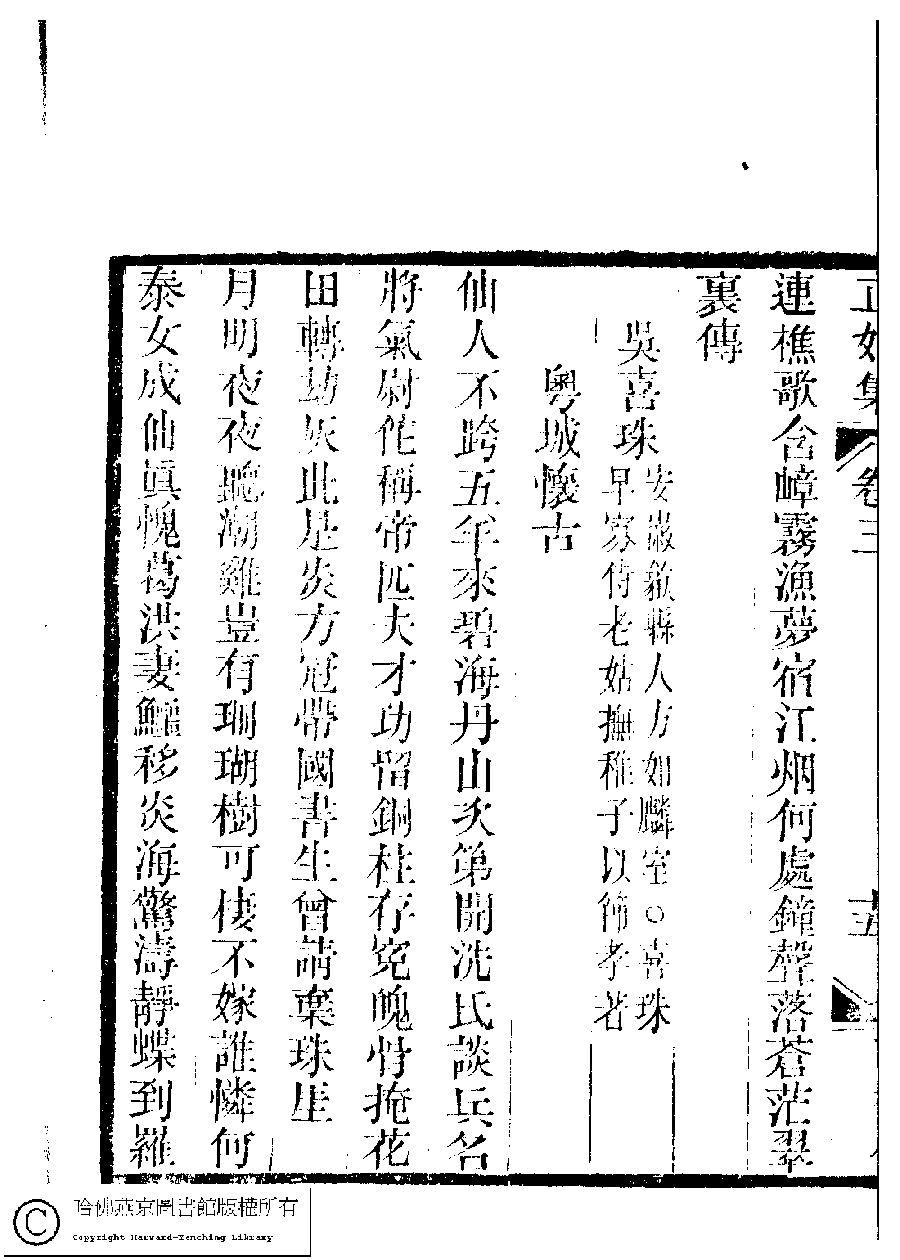 正始集 卷三 十五
連樵歌含嶂霧漁夢宿江烟何處鐘聲落蒼茫翠
裏傳
吳喜珠 安徽歙縣人方如麟室○喜珠
早寡侍老姑撫稚子以節孝著
粵城懷古
仙人不跨五羊來碧海丹山次第開洗氏談兵名
將氣尉佗稱帝匹夫才功留銅柱存冤魄骨掩花
田轉劫灰此是炎方冠帶國書生曾請棄珠厓
月明夜夜聽潮雞豈有珊瑚樹可棲不嫁誰憐何
泰女成仙眞愧葛洪妻鱷移炎海驚濤靜蝶到羅
哈佛燕京圖書館版權所有
Copyright Harvard-Yenching Library